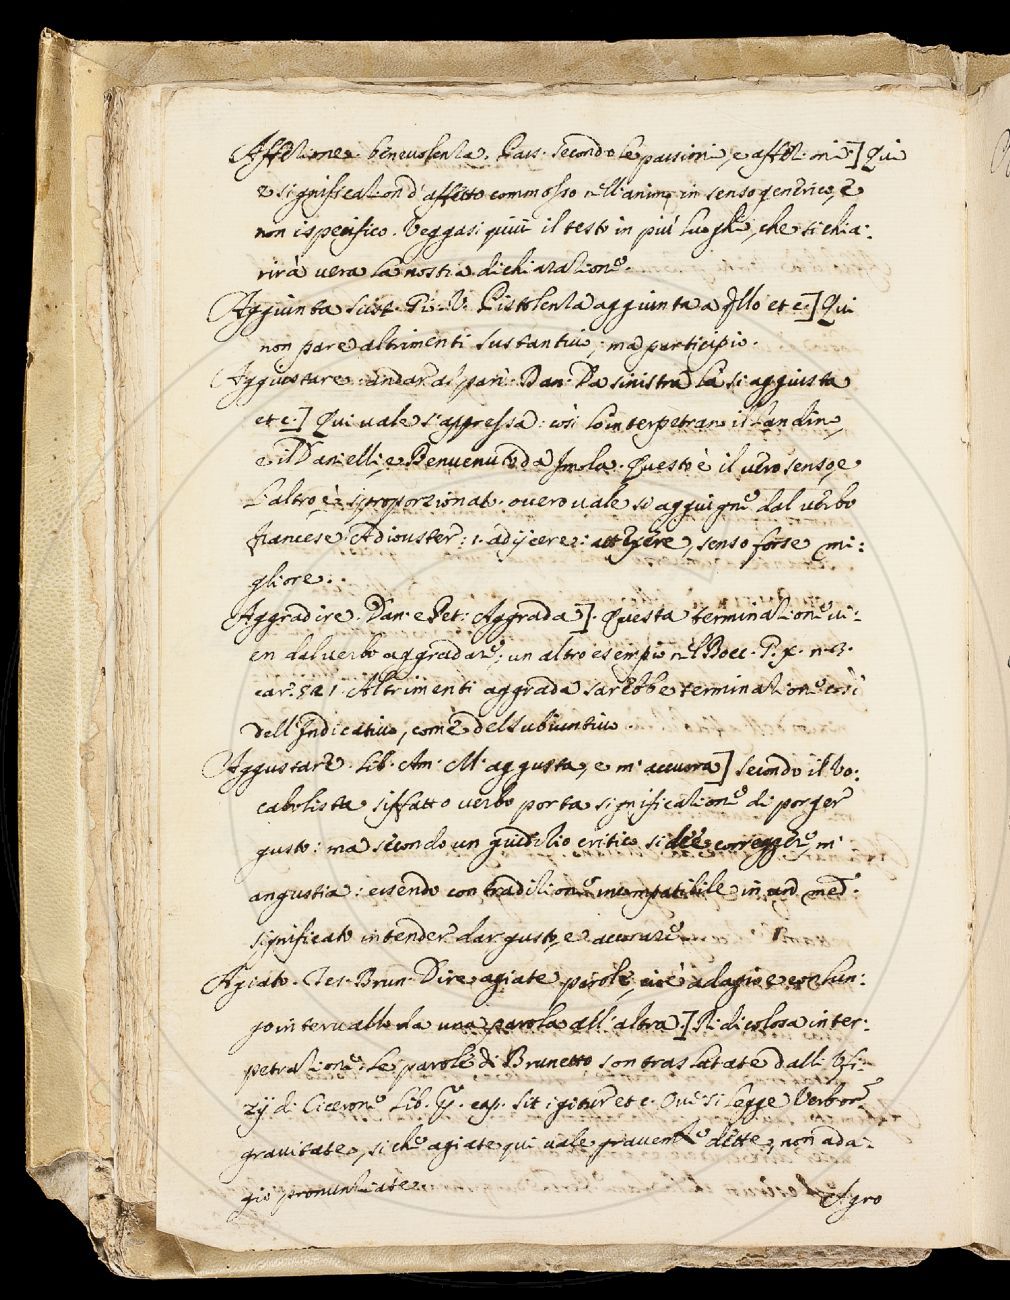 Affezione. benevolenza. Pass. secondo le passioni, e affezioni.] Qui
è significazion d'affetto commosso nell'animo in senso generico, e
non ispecifico. Veggasi quivi il testo in più luoghi, che si chia:
rirà vera la nostra dichiarazione.
Aggiunta sust. Gi. V. Pistolenza aggiunta a quello etc.] Qui
non pare altrimenti sustantivo, ma participio.
Aggiustare. andar al pari. Dan. Da sinistra là si aggiusta
etc.] Qui vale s'appressa: così lo interpetrano il Landino,
e il Danielli, e Benvenuto da Imola. Questo è il vero senso, e
l'altro è sproporzionato. overo vale si aggiugne dal verbo
francese Adiouster: i. adijcere: attexere, senso forse mi:
gliore.
Aggradire. Dan. e Pet: Aggrada]. Questa terminazione vi:
en dal verbo aggradare; un altro esempio nel Bocc. P. x. n. 3.
car. 521. Altrimenti aggrada sarebbe terminazione così
dell'Indicativo, com'è del subiuntivo.
Aggustare. Lib. Am. M'aggusta, e m'accuora] secondo il Vo:
cabolista siffatto verbo porta significazione di porger
gusto: ma secondo un giudizio critico si dee correggere, m'
angustia: essendo contradizione incompatibile in un med.
significato intender dar gusto, e accorare.
Agiato. Tes. Brun. Dire agiate parole, cioè adagio e con lun:
go intervallo da una parola all'altra.] Ridicolosa inter:
petrazione. Le parole di Brunetto son traslatate dalli Ufi:
zij di Cicerone Lib. p. cap. sit igitur etc. Ove si legge Verbor.
gravitate, si che agiate qui vale gravemente dette, non ada:
gio pronunziate.
Agro